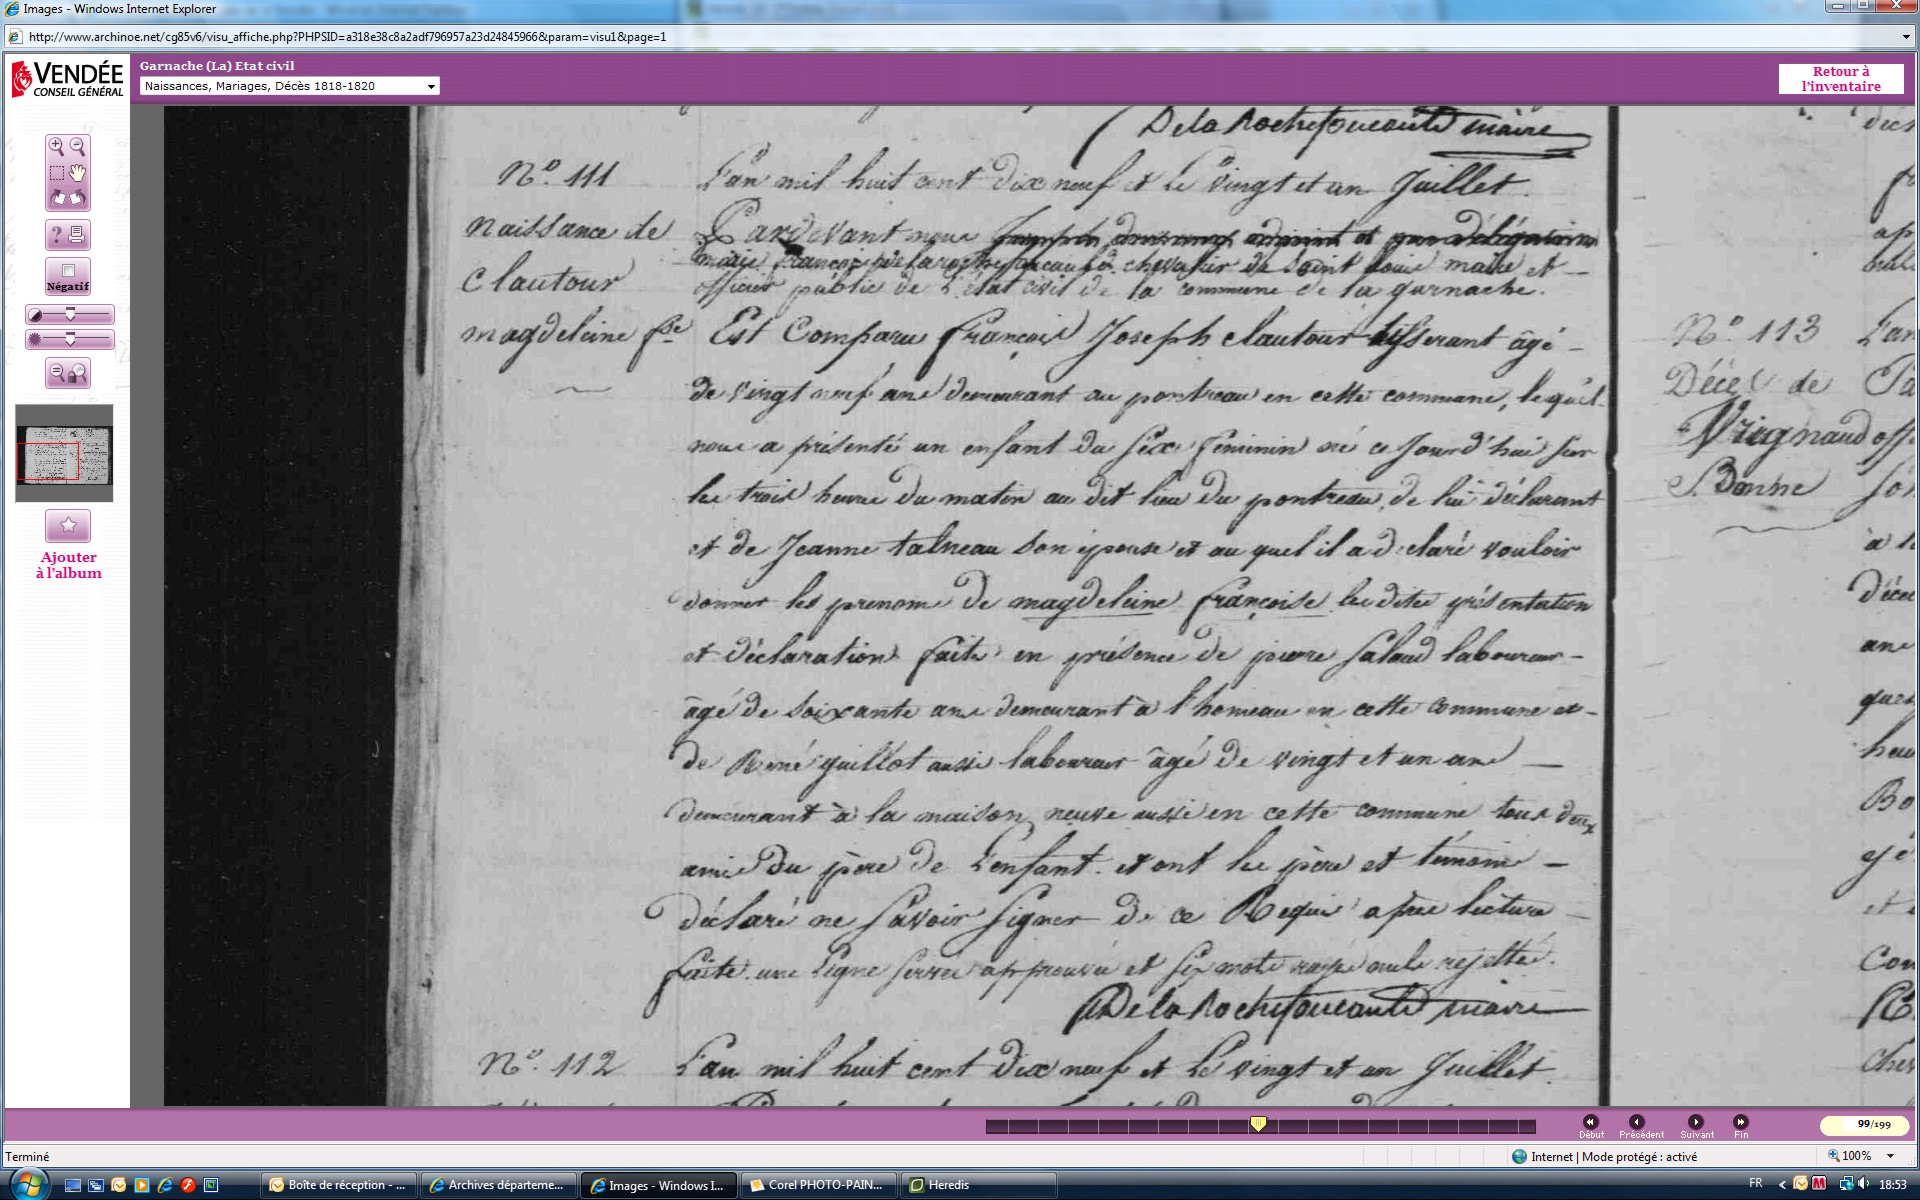 Images - Windows Internet Explorer
http://www.archinoe.net/cg85v6/visu_affiche.php?PHPSID=a318e38c8a2adf796957a23d24845966&param=visu1&page=1
VENDÉE
CONSEIL GÉNÉRAL
Garnache (La) Etat civil
Naissances, Mariages, Décès 1818-1820
Retour à
l'inventaire
Négatif
Ajouter
à l'album
De la Rochefoucauld maire
N.º 111
L'an mil huit cent dix neuf et le vingt et un Juillet.
Naissance de
Clautour
magdeleine fse
Pardevant nous
marie françois de larochefoucauld chevalier de Saint Louis maire et
officier public de l'état civil de la commune de la garnache.
Est Comparu françois Joseph clautour tisserant âgé
de vingt neuf ans demeurant au pontreau en cette commune, lequel
nous a présenté un enfant du sexe féminin né ce Jourd'hui sur
les trois heures du matin au dit lieu du pontreau, de lui déclarant
et de Jeanne talneau son épouse et au quel il a déclaré vouloir
donner les prenoms de magdeleine françoise lesdites présentation
et déclaration faites en présence de pierre Salaud laboureur
âgé de soixante ans demeurant à l'homeau en cette commune et
de René guillot aussi laboureur âgé de vingt et un ans
demeurant à la maison neuve aussi en cette commune tous deux
amis du père de l'enfant. et ont les père et témoins
déclaré ne savoir signer de ce Requis après lecture
faite. une ligne serrée approuvée et six mots rayés nuls rejetté.
De la Rochefoucauld maire
N.º 112
L'an mil huit cent dix neuf et le vingt et un Juillet.
N.º 113
Décès de
Vrignaud
Bonne
Début
Précédent
Suivant
Fin
99/199
Terminé
Internet | Mode protégé : activé
100%
Boîte de réception - ...
Archives départeme...
Images - Windows I...
Corel PHOTO-PAIN...
Heredis
FR
18:53